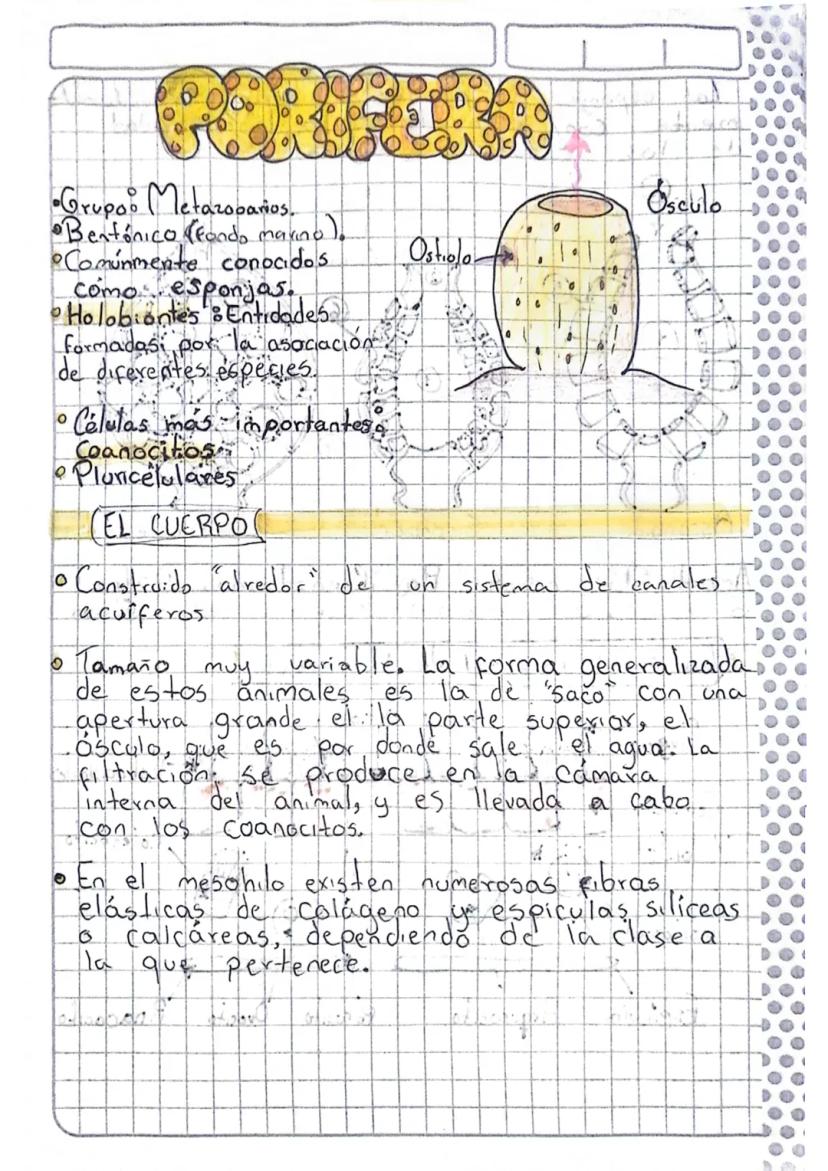 PORIFERA
•Grupo: Metazooarios.
•Bentónico (fondo marino).
•Comúnmente conocidos
como esponjas.
•Holobiontes: Entidades
formadas por la asociación
de diferentes especies.
•Células más importantes:
Coanocitos
•Pluricelulares
Ostiolo
Ósculo
EL CUERPO
•Construido "alredor" de un sistema de canales
acuíferos
•Tamaño muy variable. La forma generalizada
de estos animales es la de "saco" con una
apertura grande el la parte superior, el
ósculo, que es por donde sale el agua. La
filtración se produce en la cámara
interna del animal, y es llevada a cabo
con los coanocitos.
•En el mesohilo existen numerosas fibras
elásticas de colágeno y espículas silíceas
o calcáreas, dependiendo de la clase a
la que pertenece.